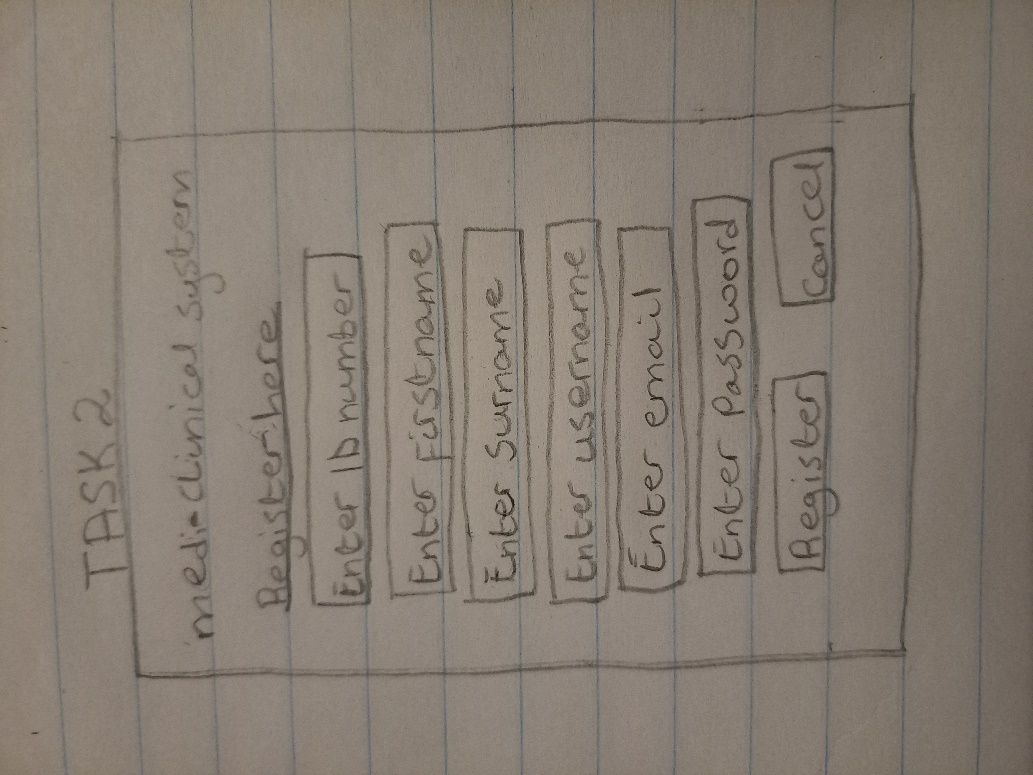 TASK 2
medi-clinical system
Register here
Enter ID number
Enter Firstname
Enter Surname
Enter username
Enter email
Enter Password
Register Cancel